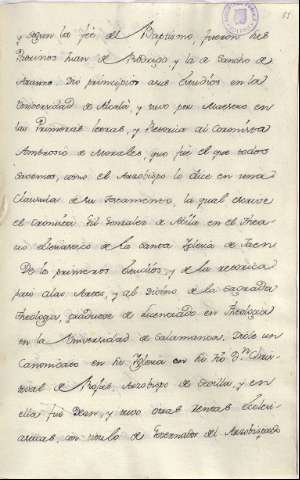 y segun la feé del Baptismo, fueron sus
Padrinos Juan de Rodrigo, y la de Sancho de
Aranda. Dio principios a sus Estudios en la
Universidad de Alcalá, y tuvo por Maestro en
las Primeras letras, y Retorica al Coronista
Ambrosio de Morales, que fué el que todos
savemos, como el Arzobispo lo dice en una
Clausula de su Testamento, la qual escrive
el Cronista Gil Gonzalez de Avila en el Thea-
tro eclesiastico de la Santa Iglesia de Jaen
De los primeros Estudios, y de la retorica
pasó a las Artes, y al Divino de la Sagrada
Theologia, graduose de Licenciado en Theologia
en la Universidad de Salamanca. Diole un
Canonicato en su Iglesia su tio Dn Chris-
toval de Rojas, Arzobispo de Sevilla, y en
ella fué Dean, y tuvo otras rentas Eclesi-
asticas, con titulo de Governador del Arzobispado